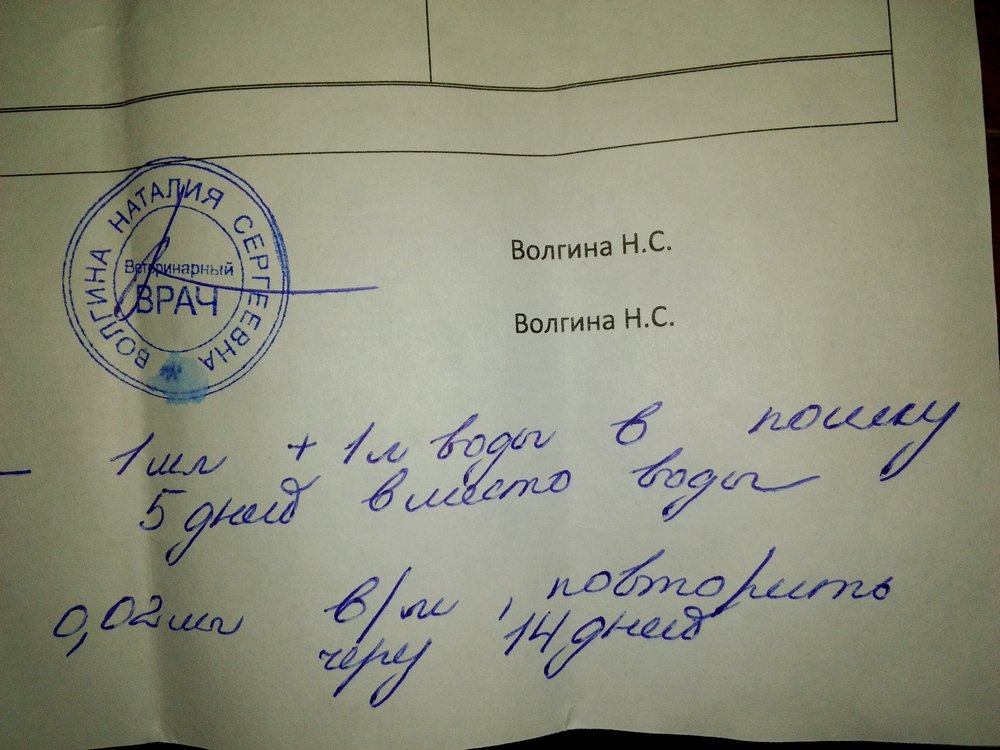 ВОЛГИНА НАТАЛИЯ СЕРГЕЕВНА
Ветеринарный
ВРАЧ
Волгина Н.С.
Волгина Н.С.
– 1 мл + 1 л воды в поилку
5 дней вместо воды
0,02 мл в/м, повторить
через 14 дней